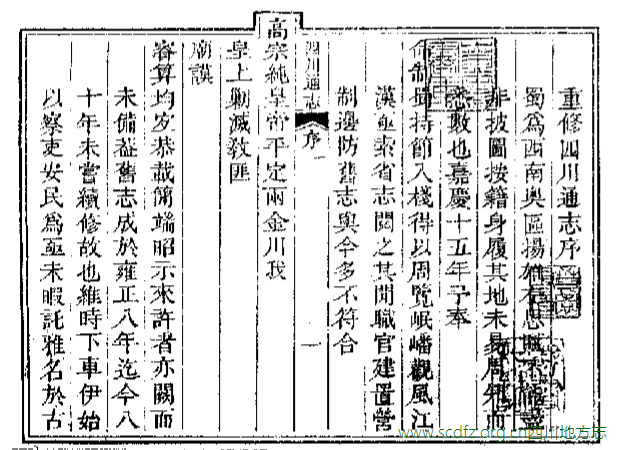 重修四川通志序
蜀爲西南奥區揚雄左思賦
非披圖按籍身履其地未易周知而
悉數也嘉慶十五年予奉
命制蜀持節入棧得以周覽岷嶓觀風江
漢亟索省志閱之其間職官建置營
制邊防舊志與今多不符合
四川通志 序 一
高宗純皇帝平定兩金川我
皇上勦滅敎匪
廟謨
睿算均宜恭載簡端昭示來許者亦闕而
未備葢舊志成於雍正八年迄今八
十年未嘗續修故也維時下車伊始
以察吏安民爲亟未暇託雅名於古
www.scdfz.org.cn四川地方志